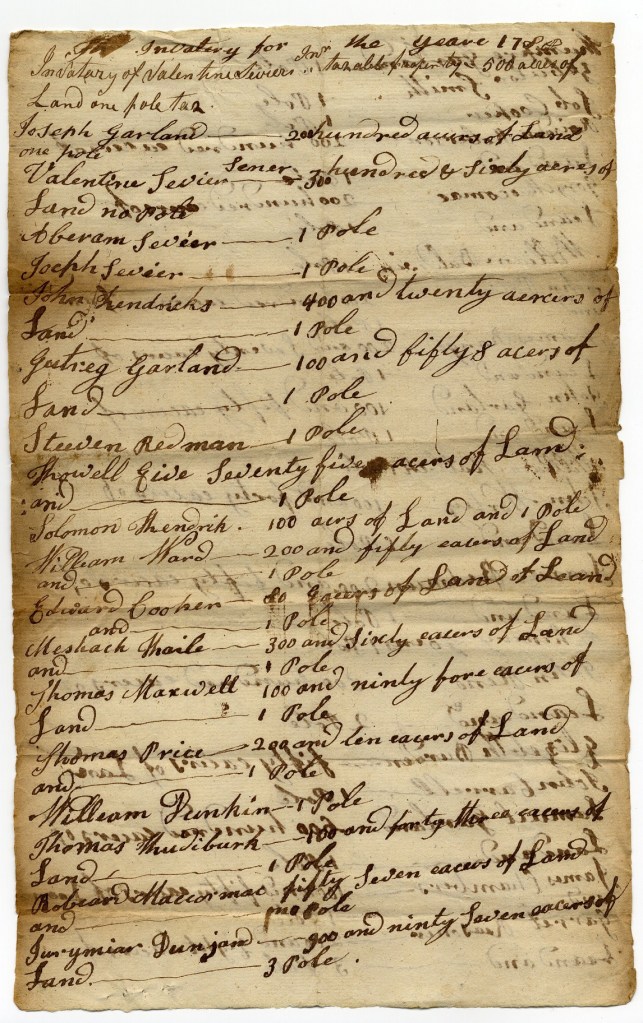 The Invatery for the yeare 178
Invatary of Valentine Seviers Jnr taxable property 500 acres of
Land one pole tax
Joseph Garland 200 hundred acers of Land
one pole
Valentine Sevier Sener 300 hundred & sixty acres of
Land no Pole
Aberam Sevier 1 Pole
Joseph Sevier 1 Pole
John Hendricks 400 and twenty aercers of
Land 1 Pole
Gutreg Garland 100 and fifty 8 acers of
Land 1 Pole
Steeven Redman 1 Pole
Howell Give Seventy five eacers of Land
and 1 Pole
Solomon Hendrik . 100 acrs of Land and 1 Pole
William Ward 200 and fifty eacers of Land
and 1 Pole
Edward Cooper 80 eacers of Land of Leand
and 1 Pole
Meshack Haile 300 and sixty eacers of Land
and 1 Pole
Thomas Maxwell 100 and ninty fore eacers of
Land 1 Pole
Thomas Price 200 and ten eacers of Land
and 1 Pole
William Dunkin 1 Pole
Thomas Hudiburk 100 and forty three eacers of
Land 1 Pole
Robeard Maccormac fifty Seven eacers of Land
and Pole
Jurymiar Dunjand 900 and ninty Seven eacers of
Land. 3 Pole.